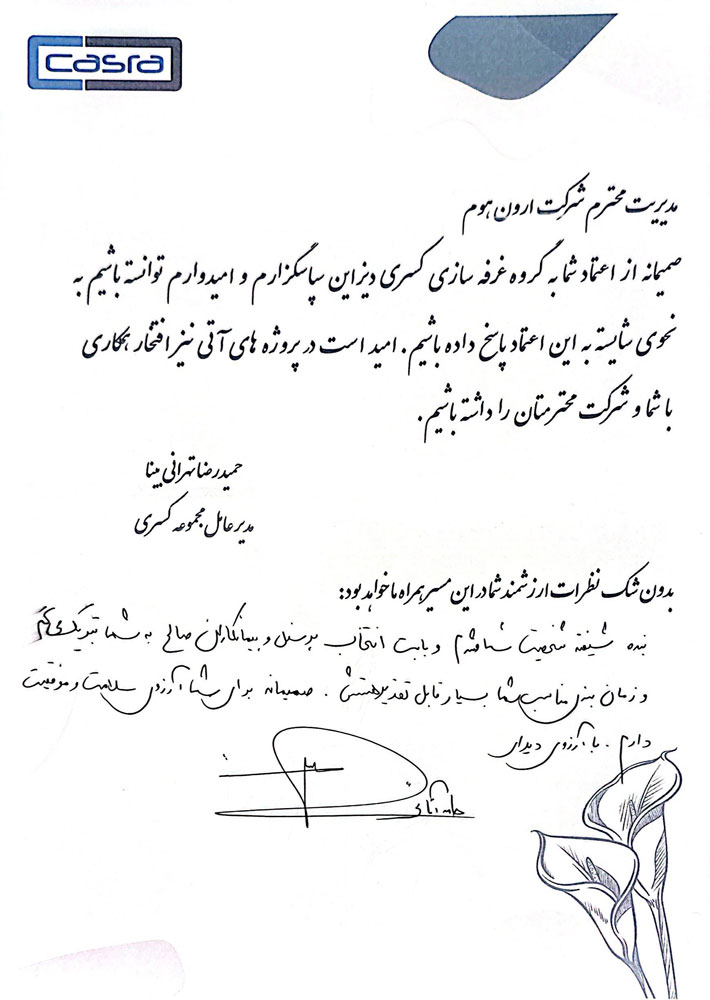 casra
مدیریت محترم شرکت ارون هوم
صمیمانه از اعتماد شما به گروه غرفه سازی کسری دیزاین سپاسگزارم و امیدوارم توانسته باشیم به
نحوی شایسته به این اعتماد پاسخ داده باشیم. امید است در پروژه های آتی نیز افتخار همکاری
با شما و شرکت محترمتان را داشته باشیم.
حمیدرضا تهرانی بینا
مدیر عامل مجموعه کسری
بدون شک نظرات ارزشمند شما در این مسیر همراه ما خواهد بود:
بنده شیفته شخصیت شما شدم و بابت انتخاب پرسنل و پیمانکاران صالح به شما تبریک می گم
و زمان بندی مناسب شما بسیار قابل تقدیر هستش. صمیمانه برای شما آرزوی سلامت و موفقیت
دارم. با آرزوی دیدار